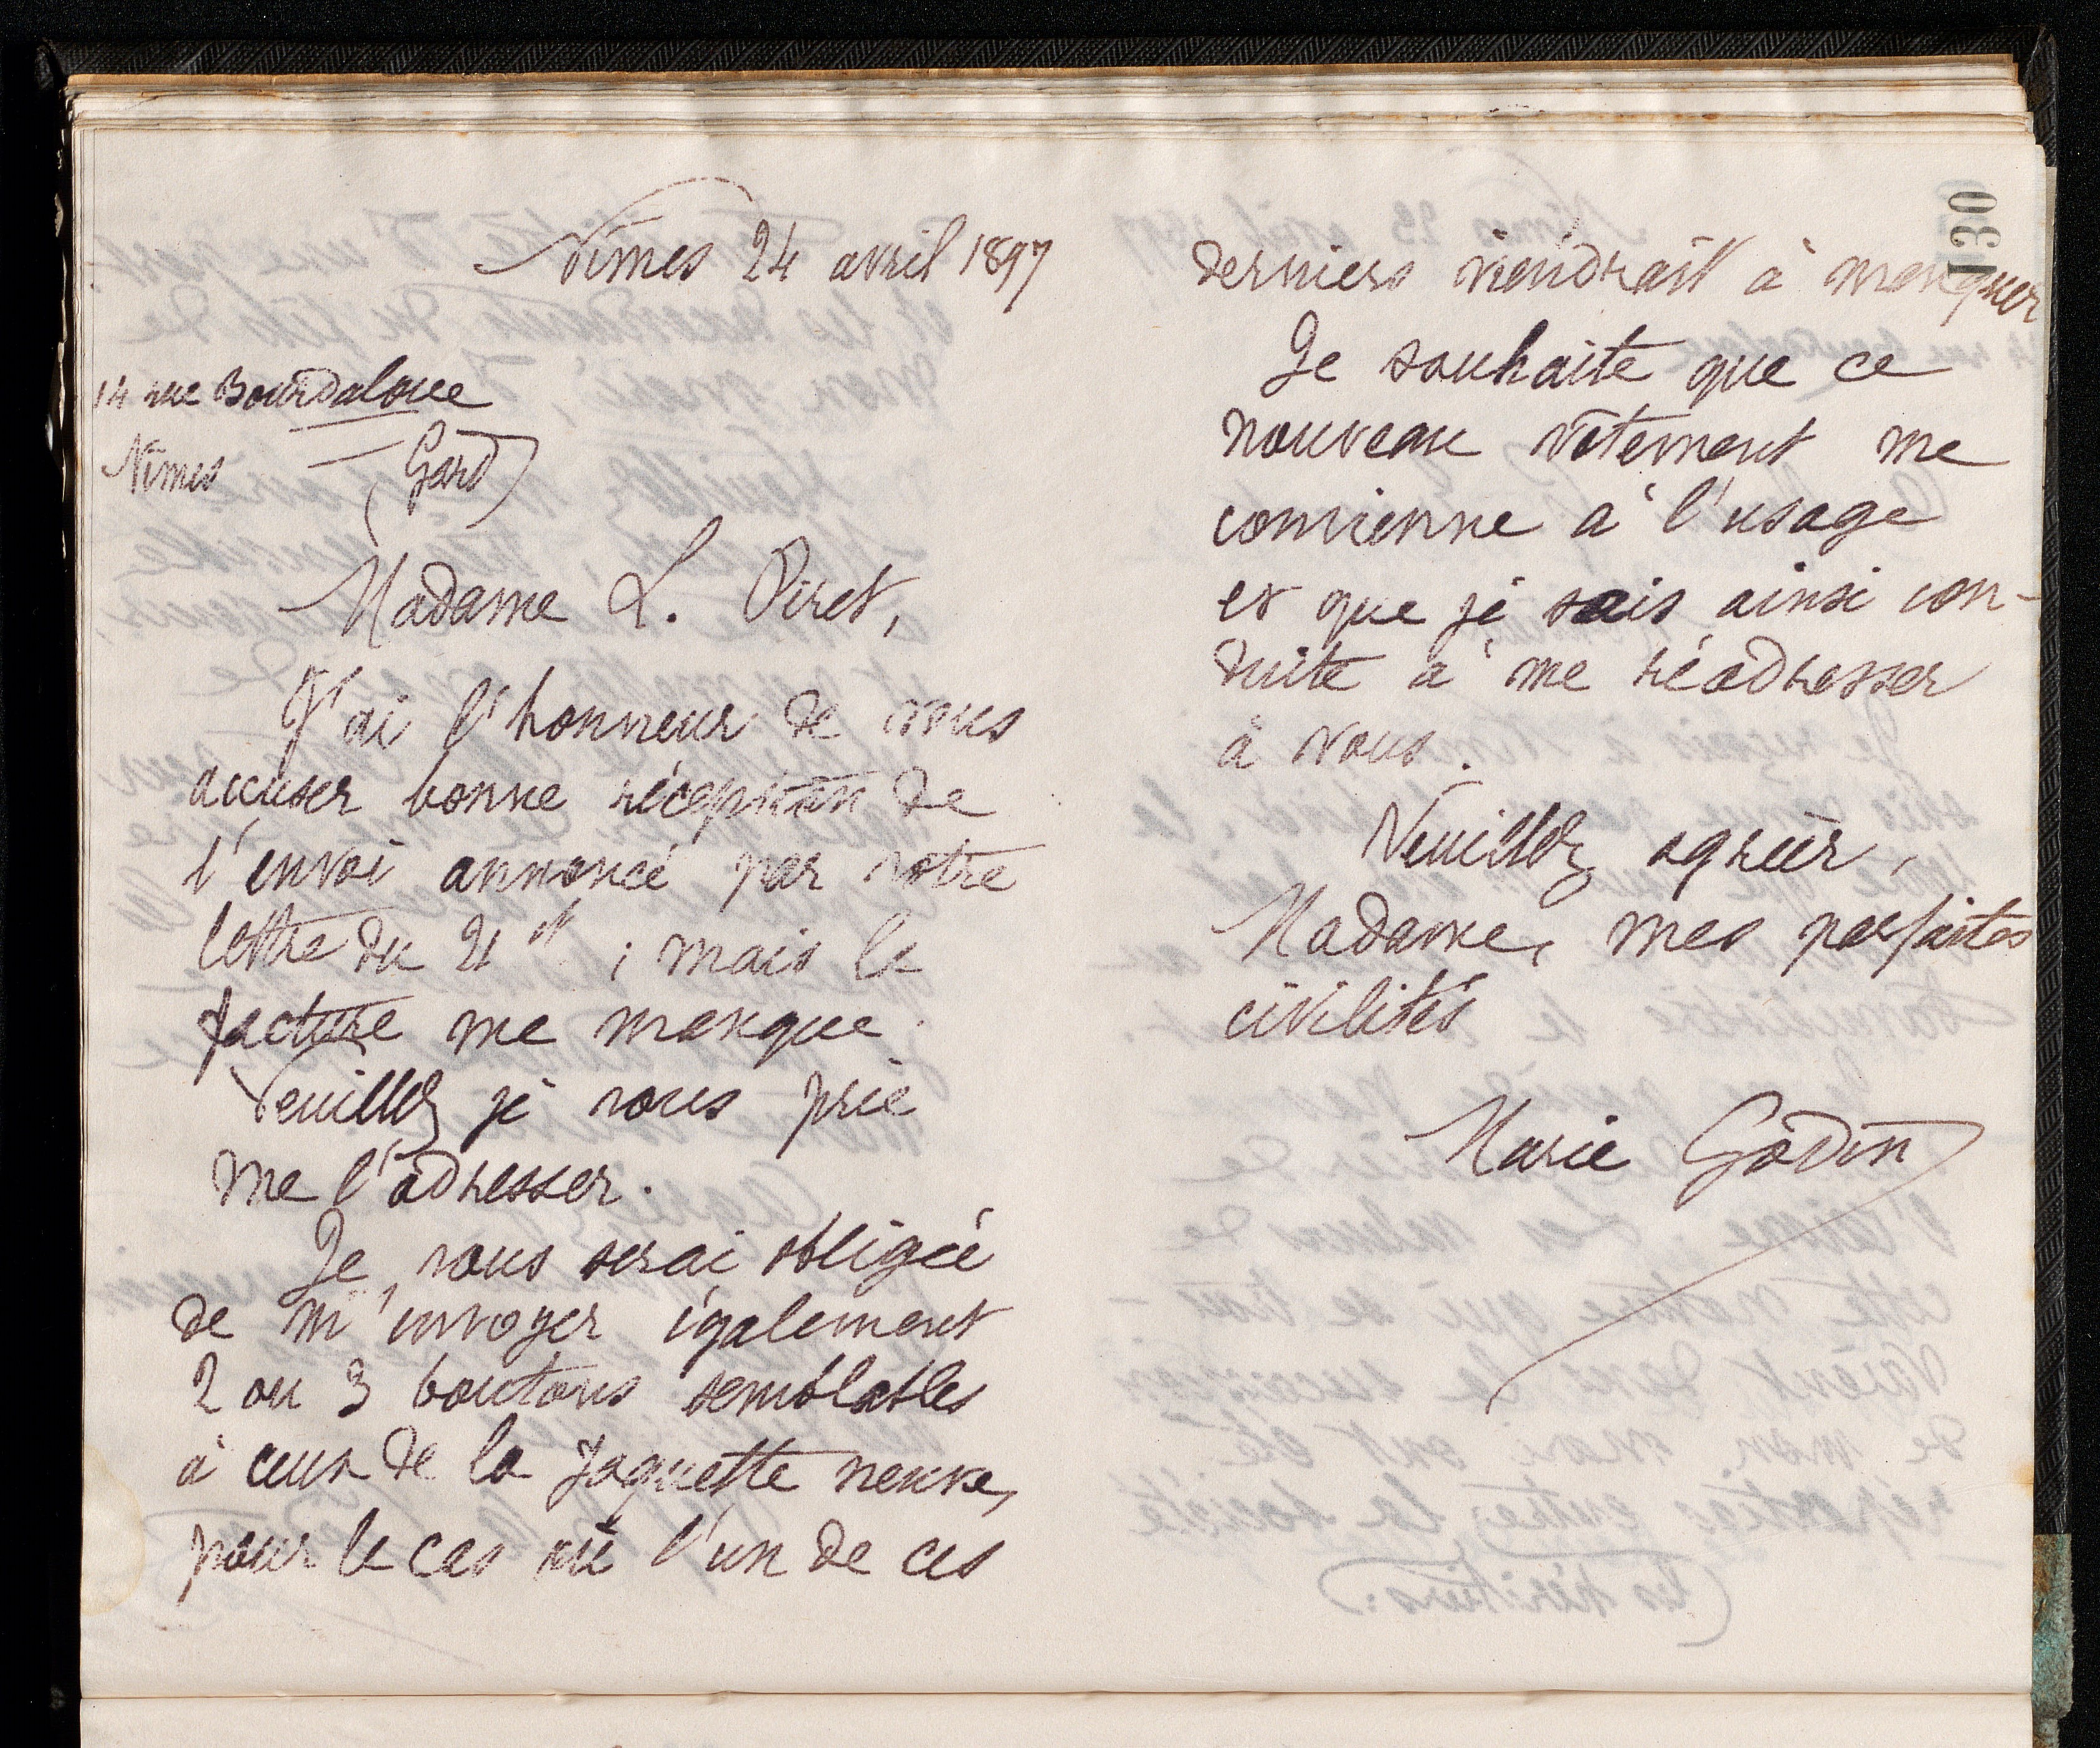 Nîmes 24 avril 1897
14 rue Bourdaloue
Nîmes (Gard)
Madame L. Piret,
J'ai l'honneur de vous
accuser bonne réception de
l'envoi annoncé par votre
lettre du 21 ct ; mais la
facture me manque.
Veuillez je vous prie
me l'adresser.
Je vous serai obligée
de m'envoyer également
2 ou 3 boutons semblables
à ceux de la jaquette neuve,
pour le cas où l'un de ces
130
derniers viendrait à manquer
Je souhaite que ce
nouveau vêtement me
convienne à l'usage
et que je sois ainsi con-
duite à me réadresser
à vous.
Veuillez agréer,
Madame, mes parfaites
civilités
Marie Godin